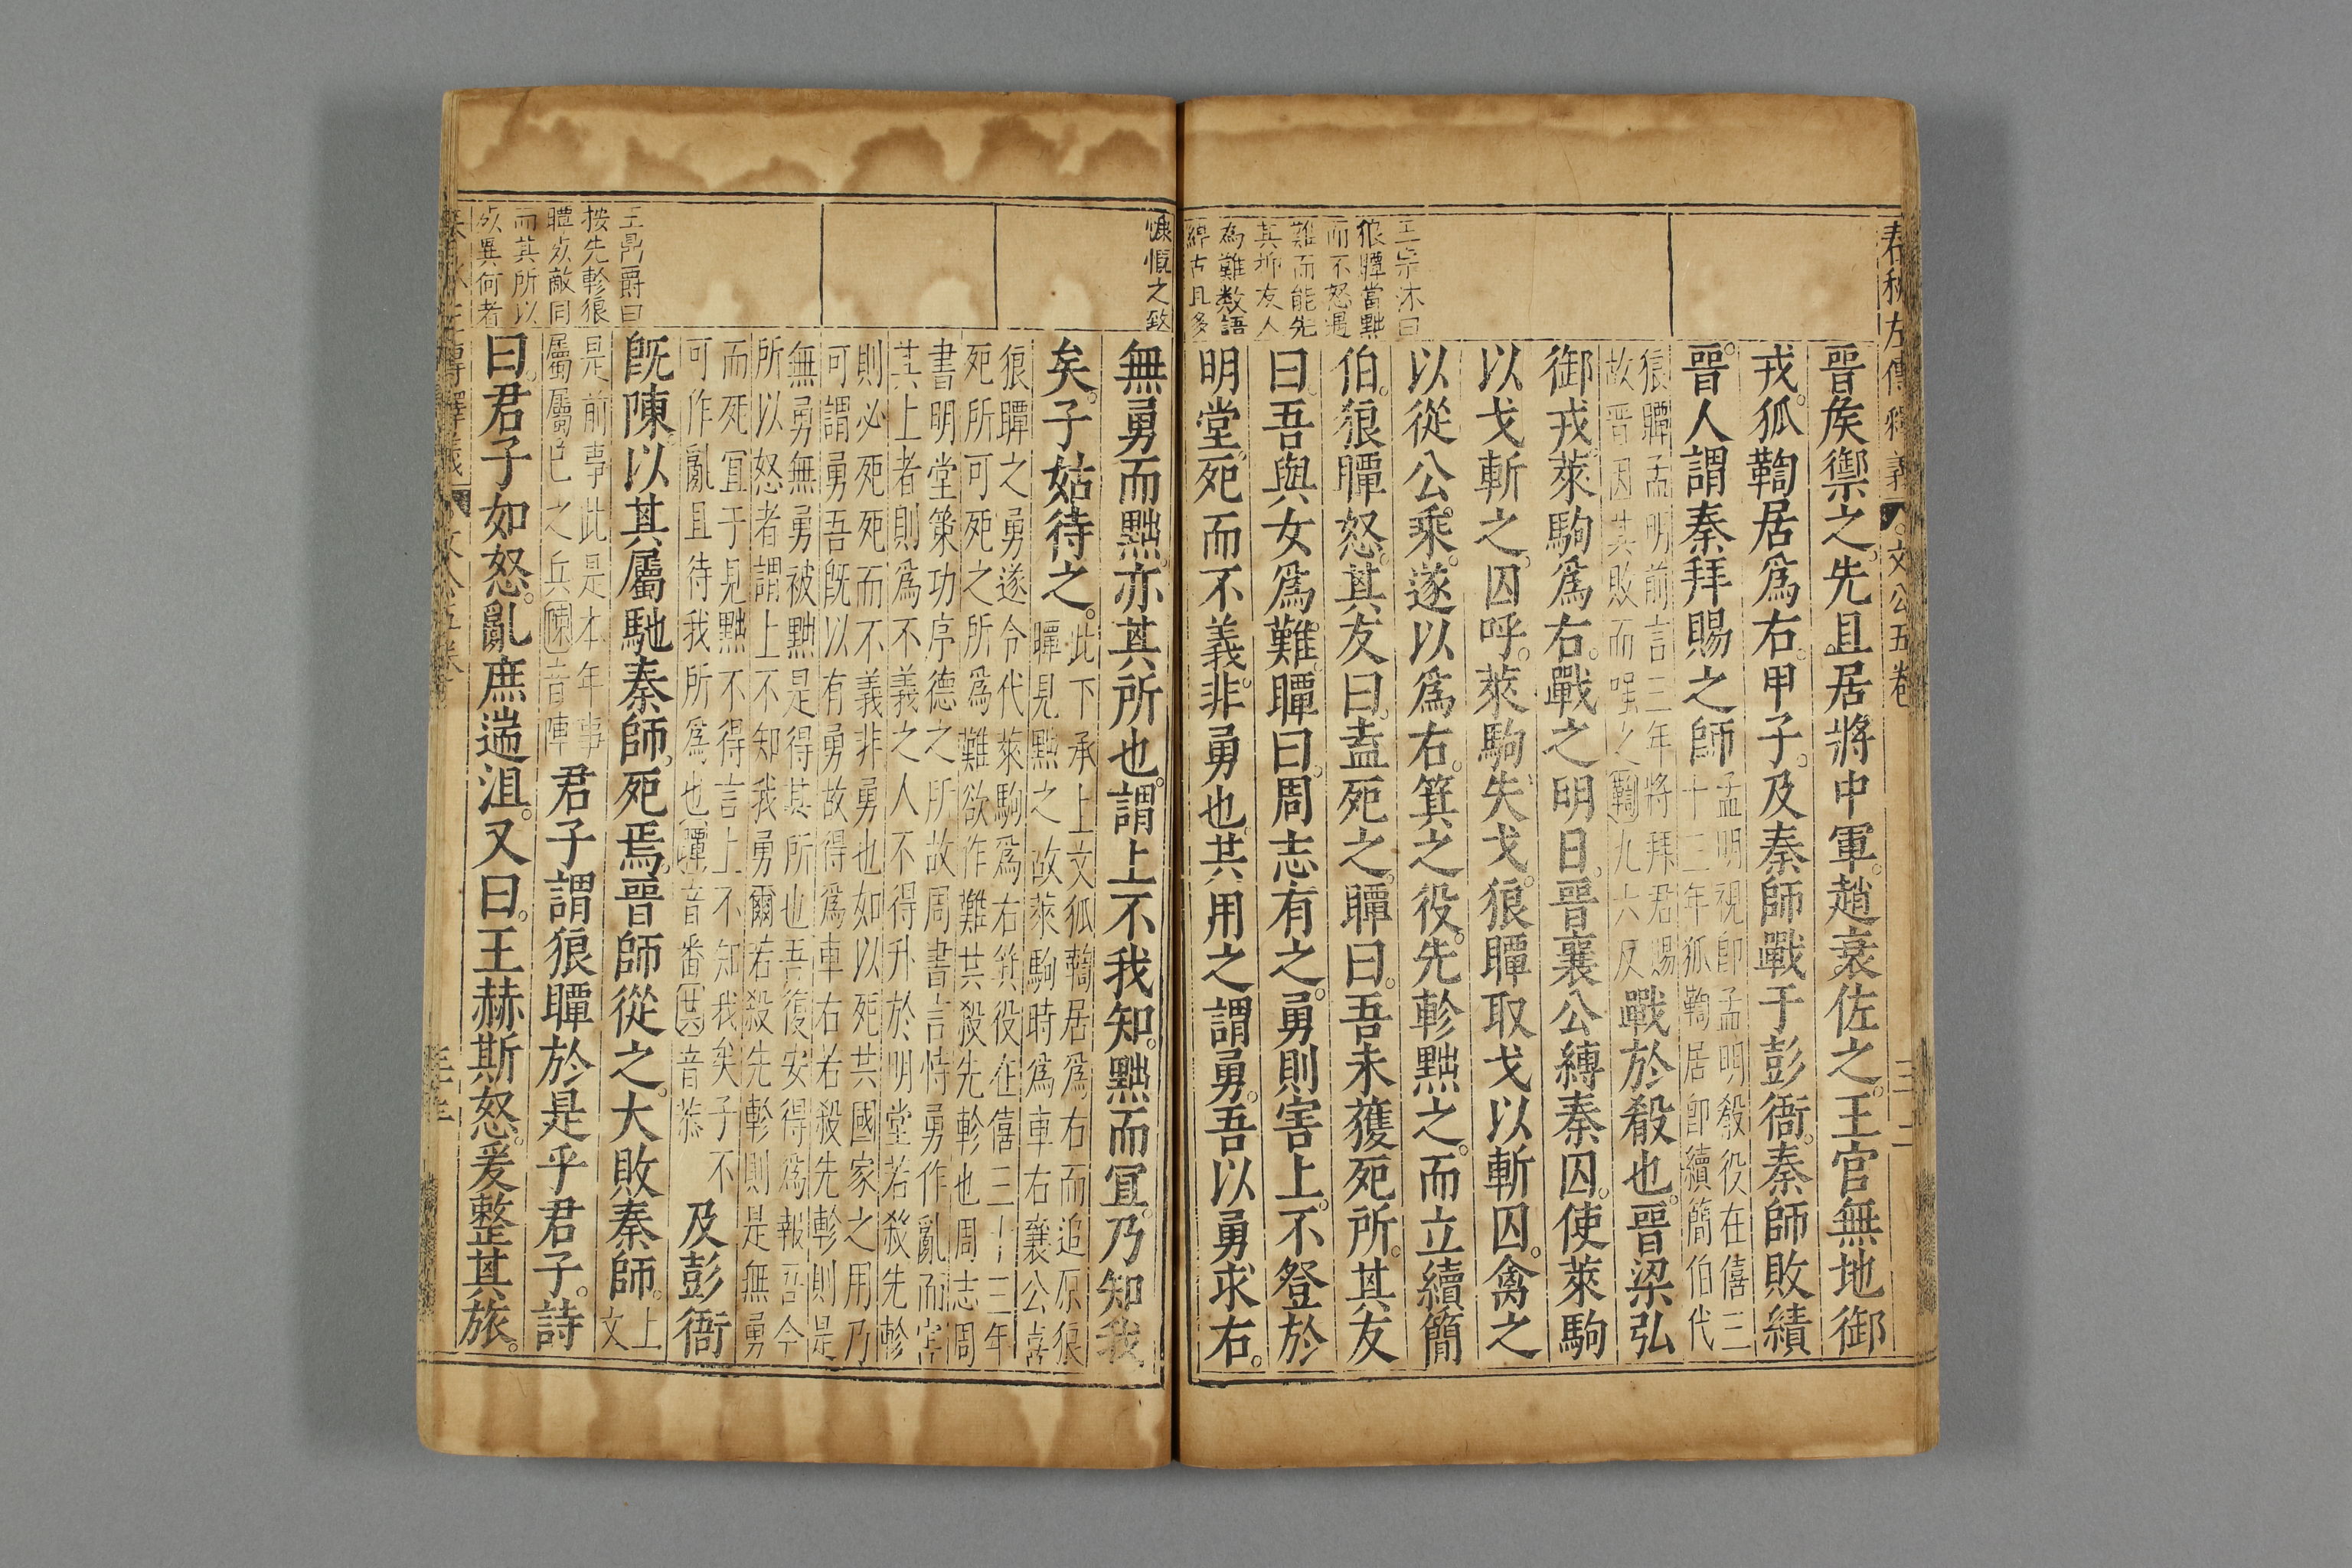 春秋左傳釋義
文公五卷
三二
王宗沐曰
狼瞫當黜
而不怒遇
難而能先
其抑友人
為難数語
綽古且多
慷慨之致
晉矦禦之。先且居將中軍。趙衰佐之。王官無地御
戎。狐鞫居爲右。甲子。及秦師戰于彭衙。秦師敗績
晉。人謂秦拜賜之師
孟明視卽孟明殽役在僖三
十三年狐鞫居卽續簡伯代
狼瞫孟明前言三年將拜君賜
故晉因其敗而嗤之鞫九六反
戰於殽也。晉梁弘
御戎。萊駒爲右。戰之明日。晉襄公縛秦囚。使萊駒
以戈斬之。囚呼。萊駒失戈。狼瞫取戈以斬囚。禽之
以從公乘。遂以爲右。箕之役。先軫黜之。而立續簡
伯。狼瞫怒。其友曰。盍死之。瞫曰。吾未獲死所。其友
曰。吾與女爲難。瞫曰。周志有之。勇則害上。不登於
明堂。死而不義。非勇也。共用之謂勇。吾以勇求右。
無勇而黜。亦其所也。謂上不我知。黜而宜。乃知我
矣。子姑待之。
此下承上文狐鞫居爲右而追原狼
瞫見黜之故萊駒時爲車右襄公喜
狼瞫之勇遂令代萊駒爲右箕役在僖三十三年
死所可死之所爲難欲作難共殺先軫也周志周
書明堂策功序德之所故周書言恃勇作亂而害
其上者則爲不義之人不得升於明堂若殺先軫
則必死死而不義非勇也如以死共國家之用乃
可謂勇吾旣以有勇故得爲車右若殺先軫則是
無勇無勇被黜是得其所也吾復安得爲報吾今
所以怒者謂上不知我勇爾若殺先軫則是無勇
而死宜于見黜不得言上不知我矣子不
可作亂且待我所爲也瞫音番共音恭
及彭衙
旣陳。以其屬馳秦師。死焉。晉師從之。大敗秦師。
上
文
是前事此是本年事
屬屬邑之兵陳音陣
君子謂狼瞫於是乎君子。詩
曰。君子如怒。亂庶遄沮。又曰。王赫斯怒。爰整其旅。
王鼎爵曰
按先軫狼
瞫死敵同
而其所以
死異何者